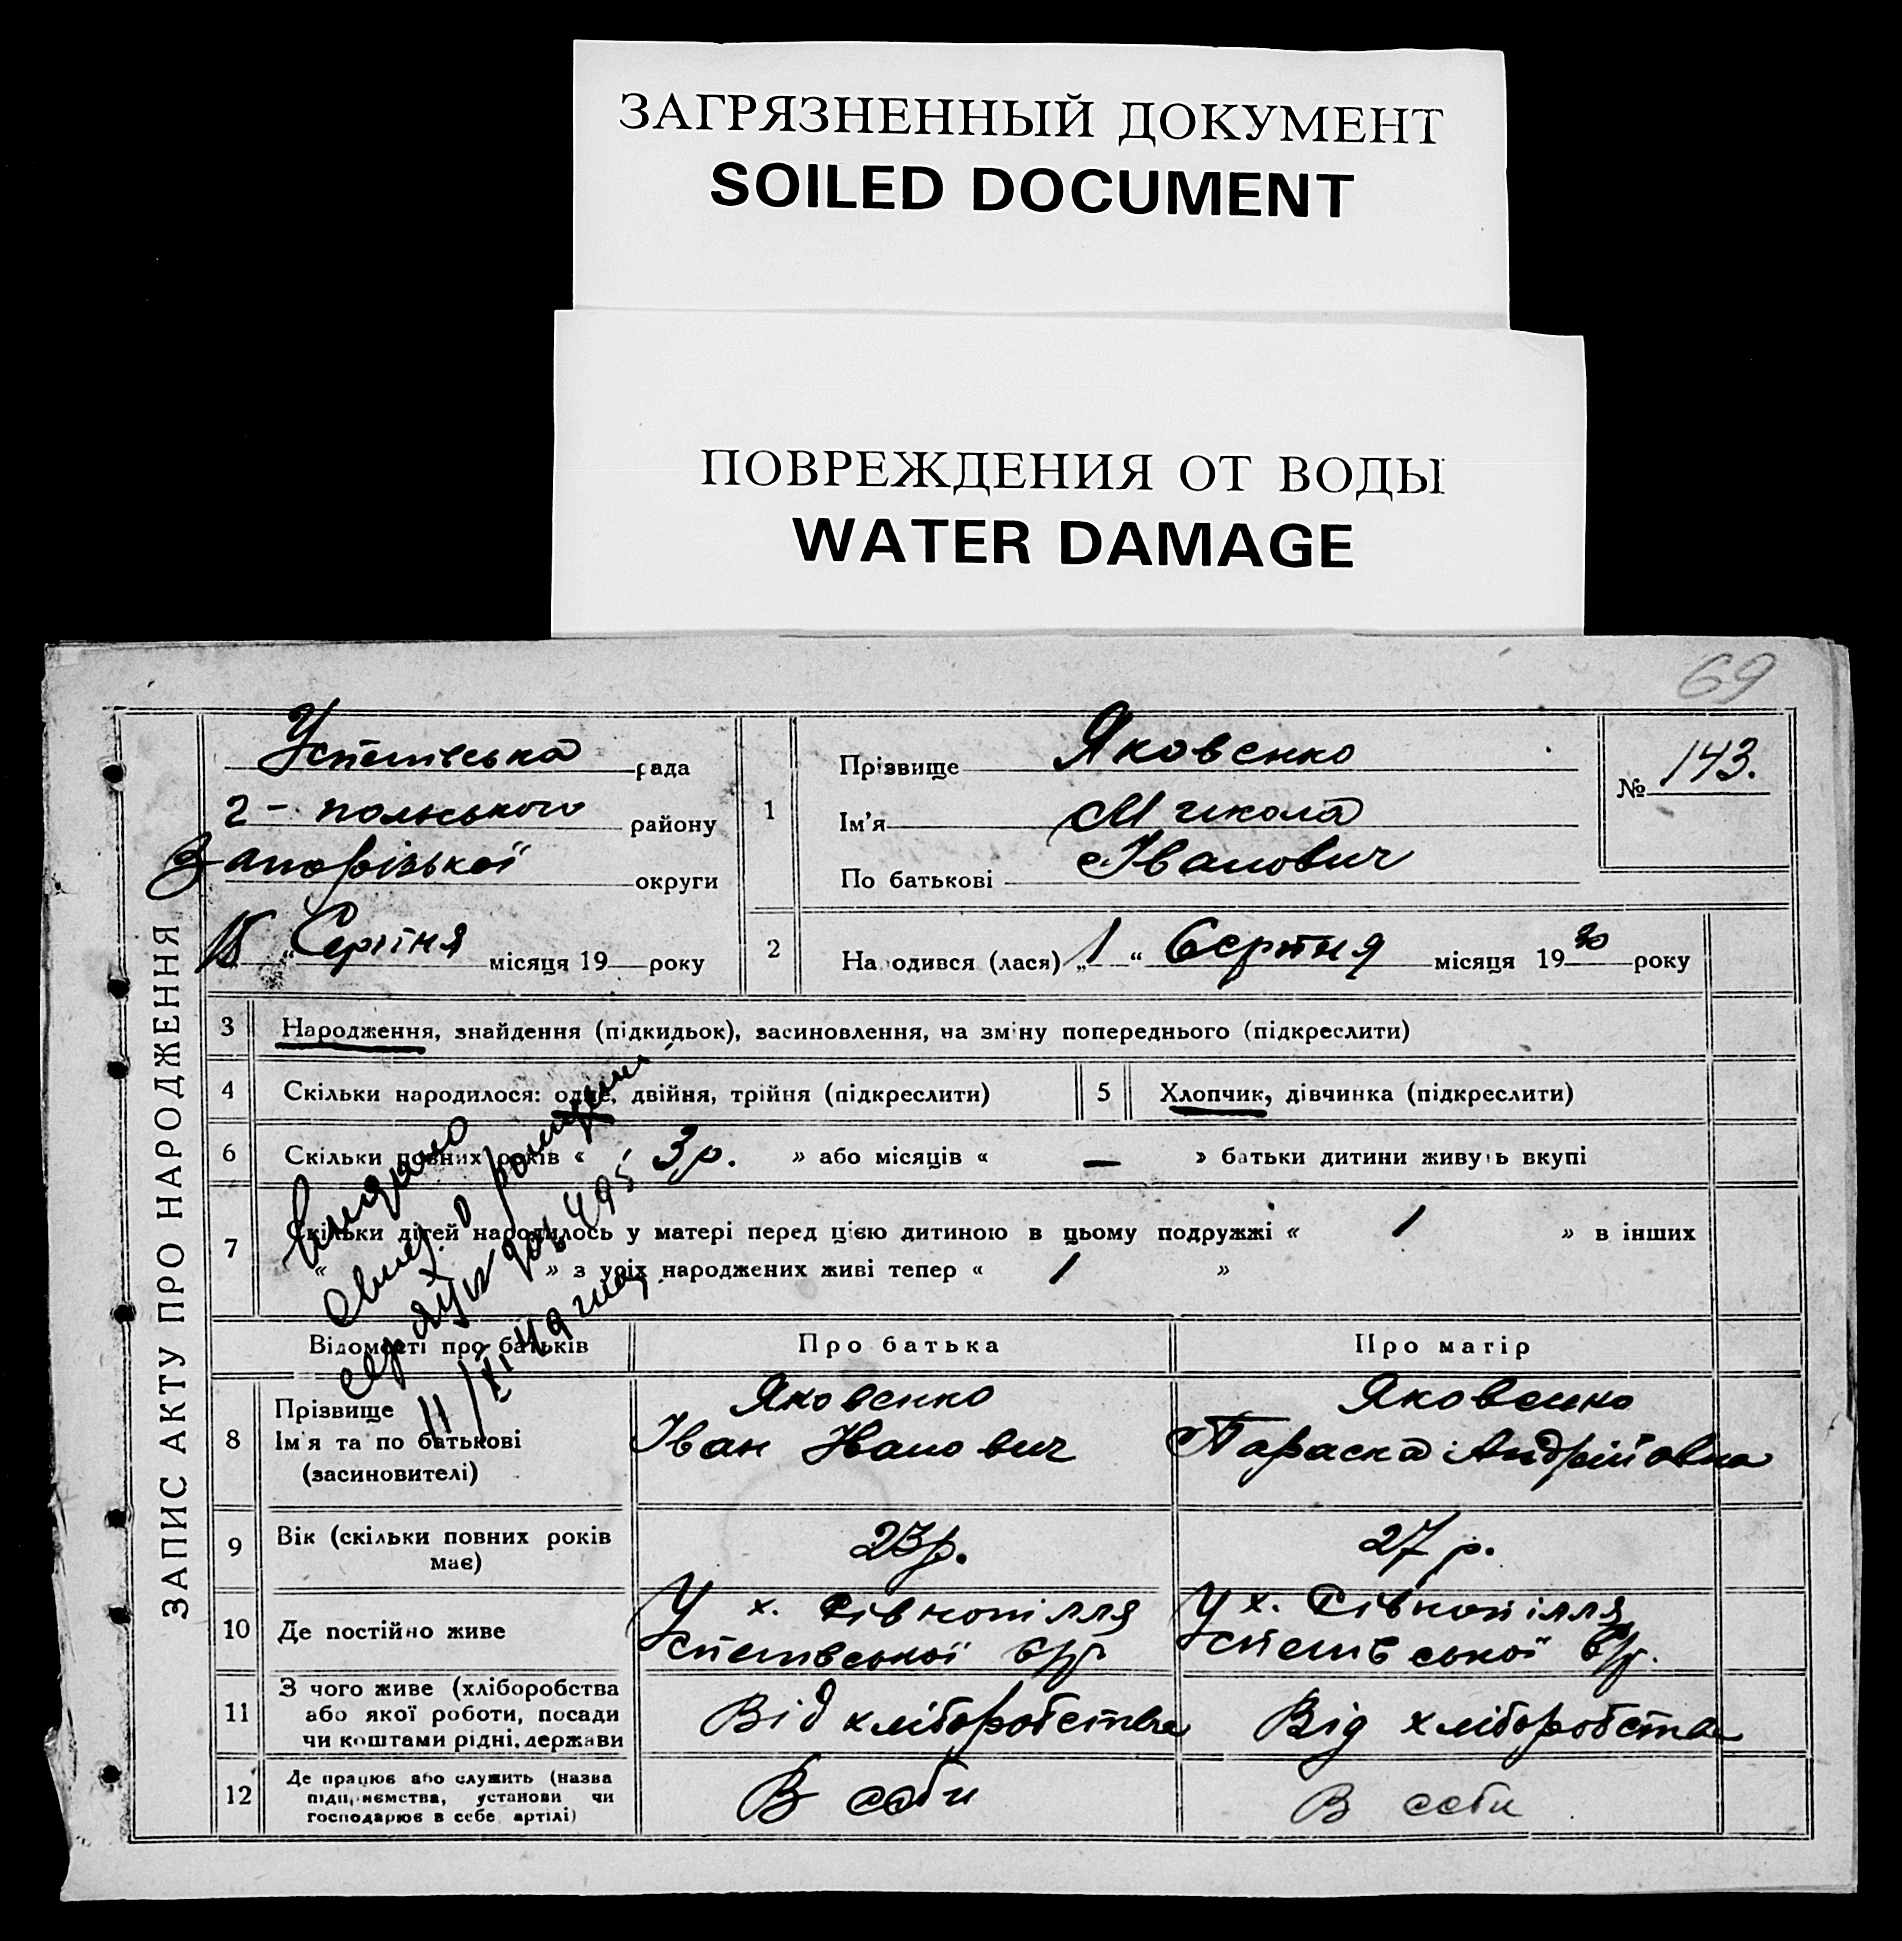 ЗАГРЯЗНЕННЫЙ ДОКУМЕНТ
SOILED DOCUMENT
ПОВРЕЖДЕНИЯ ОТ ВОДЫ
WATER DAMAGE
69
ЗАПИС АКТУ ПРО НАРОДЖЕННЯ
Успенівська рада
г-польського району
Запорізької округи
15 „ Серпня місяця 19 року
1
Прізвище Яковенко
Ім'я Микола
По батькові Іванович
№ 143.
2 Народився (лася) „1“ Серпня місяця 1930 року
3 Народження, знайдення (підкидьок), засиновлення, на зміну попереднього (підкреслити)
4 Скільки народилося: одне, двійня, трійня (підкреслити)
5 Хлопчик, дівчинка (підкреслити)
6 Скільки повних років « 3 р. » або місяців « — » батьки дитини живуть вкупі
7 Скільки дітей народилось у матері перед цією дитиною в цьому подружжі « 1 » в інших
« » з усіх народжених живі тепер « 1 »
Відомості про батьків Про батька Про матір
8 Прізвище
Ім'я та по батькові
(засиновителі)
Яковенко
Іван Іванович
Яковенко
Параска Андрійовна
9 Вік (скільки повних років
має)
23 р.
27 р.
10 Де постійно живе
У х. Рівнопілля
Успенівської с/р
У х. Рівнопілля
Успенівської с/р.
11 З чого живе (хліборобства
або якої роботи, посади
чи коштами рідні, держави
Від хліборобства
Від хліборобства
12 Де працює або служить (назва
підприємства, установи чи
господарює в себе, артілі)
В себи
В себи